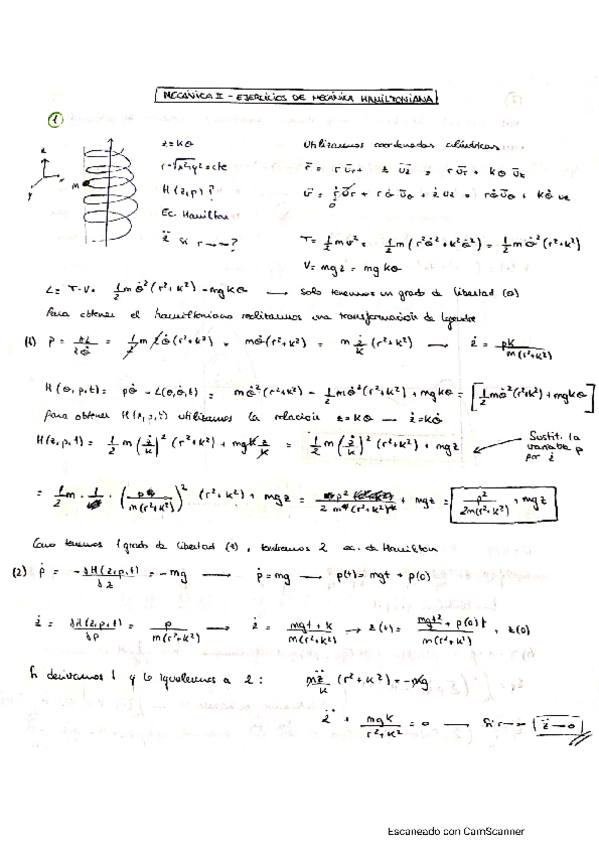 MECÁNICA II - EJERCICIOS DE MECÁNICA HAMILTONIANA
1
z = kθ
Utilizamos coordenadas cilíndricas
z
y
m
r = √x²+y² = cte
r̄ = r ūr + z ūz = r ūr + kθ ūz
H(z,p)?
v̄ = ṙ ūr + rθ̇ ūθ + ż ūz = rθ̇ ūθ + kθ̇ uz
0
Ec. Hamilton
z̈ si r → ?
T = 1/2 m v² = 1/2 m (r²θ̇² + k²θ̇²) = 1/2 m θ̇² (r²+k²)
V = mgz = mg kθ
L = T-V = 1/2 m θ̇² (r²+k²) - mg kθ → Solo tenemos un grado de libertad (θ)
Para obtener el hamiltoniano realizamos una transformación de Legendre
(1) p = ∂L/∂θ̇ = 1/2 m 2θ̇ (r²+k²) = mθ̇ (r²+k²) = m ż/k (r²+k²) → ż = pk/m(r²+k²)
H(θ,p,t) = pθ̇ - L(θ,θ̇,t) = mθ̇² (r²+k²) - 1/2 mθ̇² (r²+k²) + mgkθ = [1/2 mθ̇² (r²+k²) + mgkθ]
Para obtener H(z,p,t) utilizamos la relación z = kθ → ż = kθ̇
H(z,p,t) = 1/2 m (ż/k)² (r²+k²) + mgk z/k = 1/2 m (ż/k)² (r²+k²) + mgz
Sustit. la variable p por ż
= 1/2 m · (p/m(r²+k²))² (r²+k²) + mgz = + mgz = p²/2m(r²+k²) + mgz
Como tenemos 1 grado de libertad (z), tendremos 2 ec. de Hamilton
(2) ṗ = -∂H(z,p,t)/∂z = -mg → ṗ = mg → p(t) = mgt + p(0)
ż = ∂H(z,p,t)/∂p = p/m(r²+k²) → ż = mgt + k/m(r²+k²) → z(t) = + z(0)
Si derivamos 1 y lo igualamos a 2: mz̈/k (r²+k²) = -mg
z̈ + mgk/r²+k² = 0 → Si r → z̈ → 0
Escaneado con CamScanner